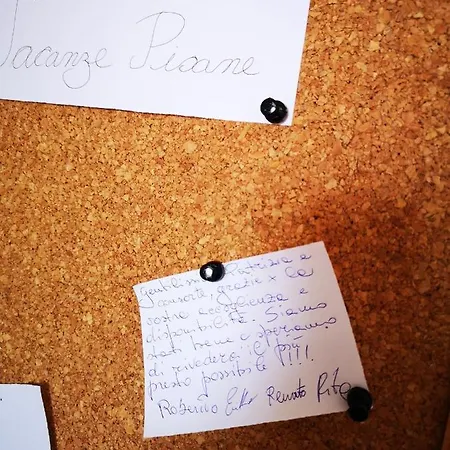 Vacanze Pisane
Gentilissimi Patrizia e
consorte, grazie x la
vostra accoglienza e
disponibilità. Siamo
stati bene e speriamo
di rivedervi il più
presto possibile !!!
Roberto Renato Rita